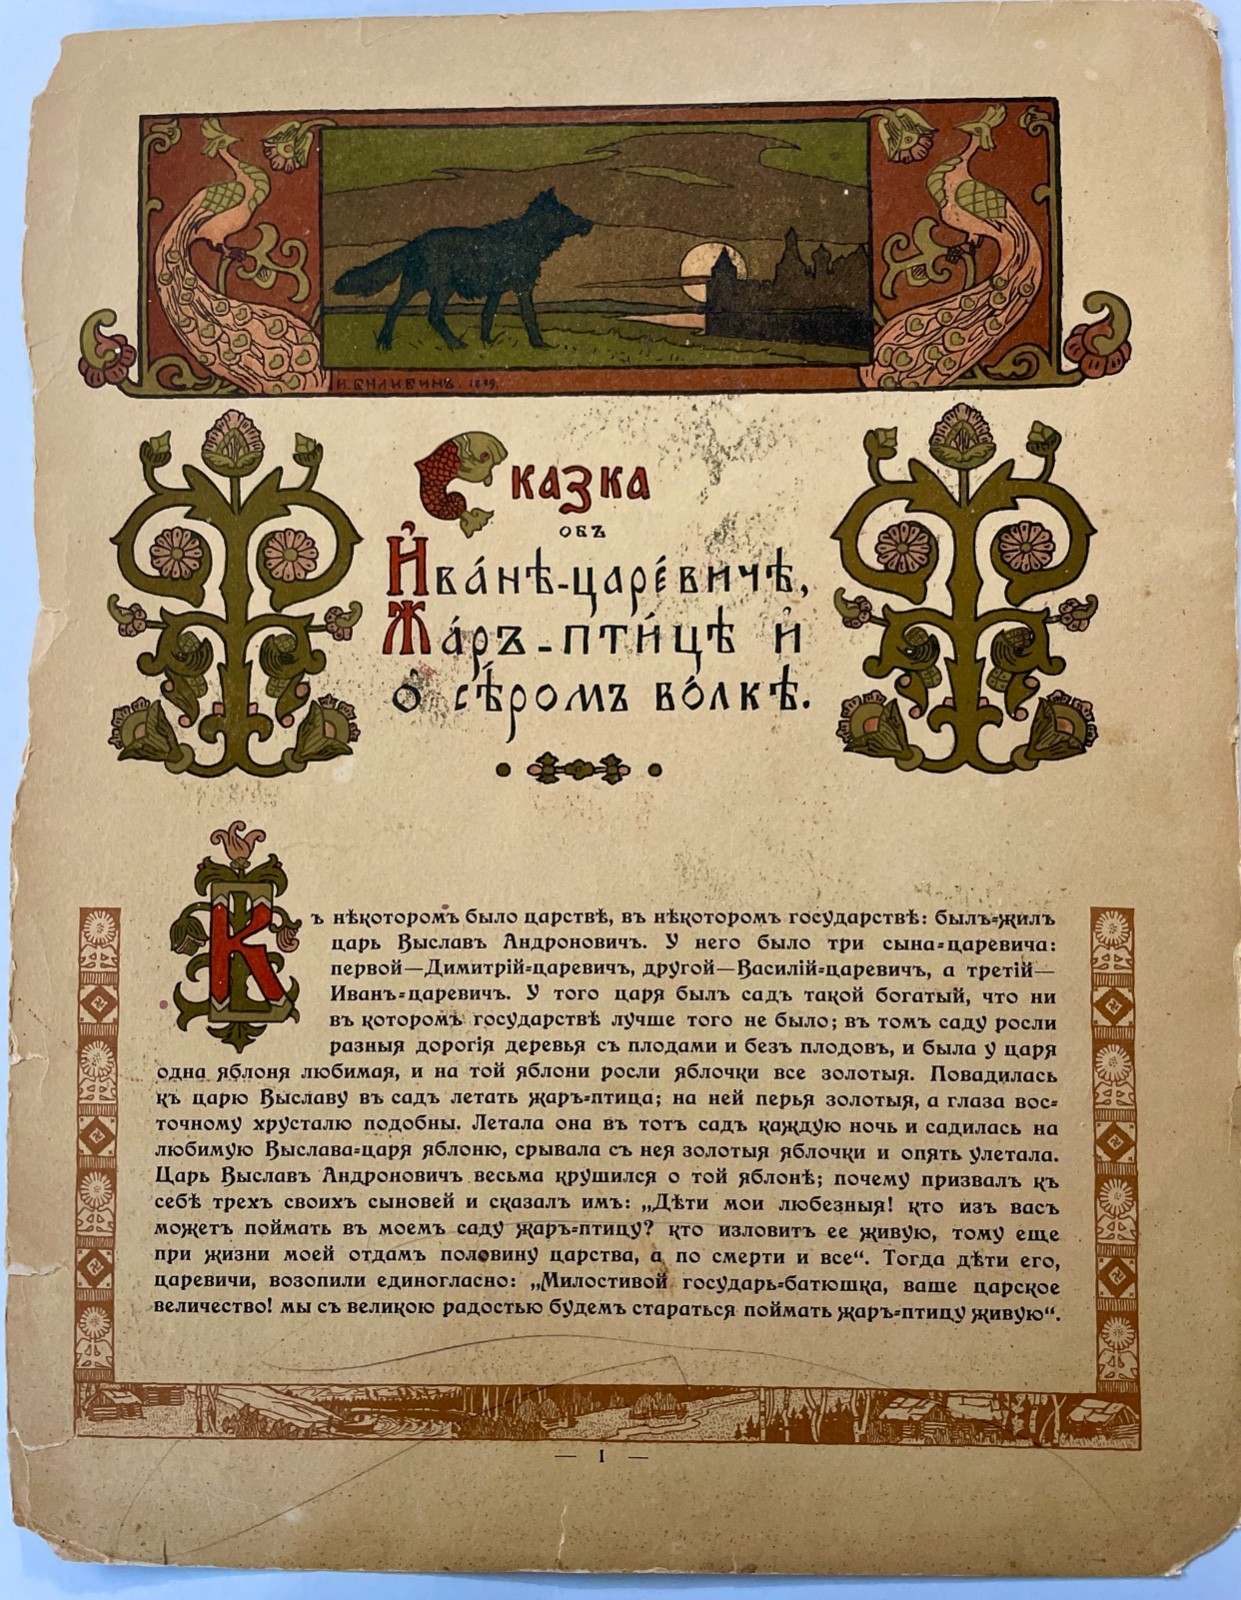 И. БИЛИБИНЪ. 1899.
Сказка
объ
Ива́нѣ-царе́вичѣ,
Жа́ръ-пти́цѣ и
о сѣ́ромъ во́лкѣ.
Въ нѣкоторомъ было царствѣ, въ нѣкоторомъ государствѣ: былъ-жилъ
царь Выславъ Андроновичъ. У него было три сына-царевича:
первой—Димитрій-царевичъ, другой—Василій-царевичъ, а третій—
Иванъ-царевичъ. У того царя былъ садъ такой богатый, что ни
въ которомъ государствѣ лучше того не было; въ томъ саду росли
разныя дорогія деревья съ плодами и безъ плодовъ, и была у царя
одна яблоня любимая, и на той яблони росли яблочки все золотыя. Повадилась
къ царю Выславу въ садъ летать жаръ-птица; на ней перья золотыя, а глаза вос-
точному хрусталю подобны. Летала она въ тотъ садъ каждую ночь и садилась на
любимую Выслава-царя яблоню, срывала съ нея золотыя яблочки и опять улетала.
Царь Выславъ Андроновичъ весьма крушился о той яблонѣ; почему призвалъ къ
себѣ трехъ своихъ сыновей и сказалъ имъ: „Дѣти мои любезныя! кто изъ васъ
можетъ поймать въ моемъ саду жаръ-птицу? кто изловитъ ее живую, тому еще
при жизни моей отдамъ половину царства, а по смерти и все“. Тогда дѣти его,
царевичи, возопили единогласно: „Милостивой государь-батюшка, ваше царское
величество! мы съ великою радостью будемъ стараться поймать жаръ-птицу живую“.
— 1 —